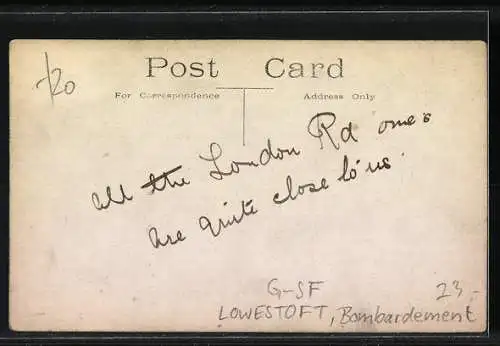 120
Post Card
For Correspondence Address Only
all the London Rd ome's
are quite close to us.
G-SF
23.-
LOWESTOFT, Bombardement